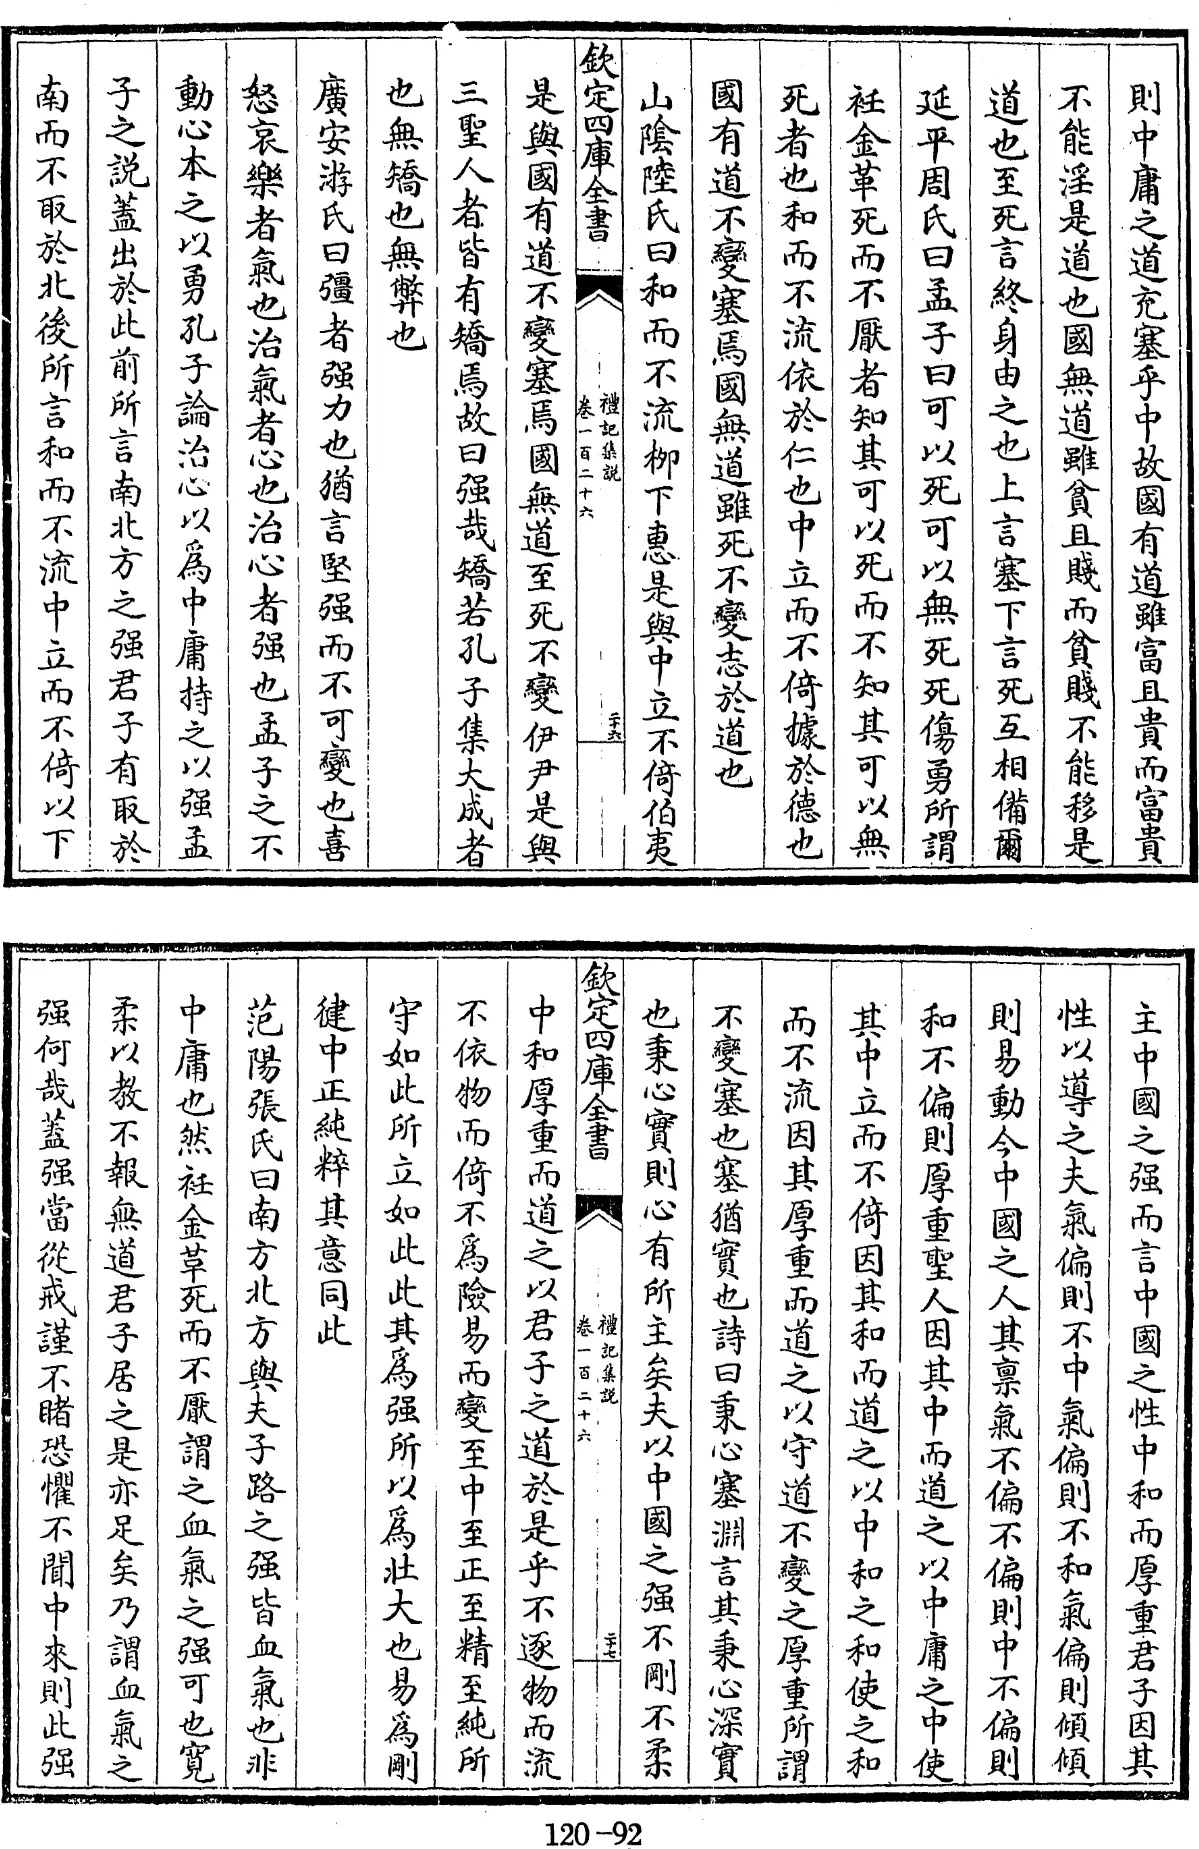 則中庸之道充塞乎中故國有道雖富且貴而富貴
不能淫是道也國無道雖貧且賤而貧賤不能移是
道也至死言終身由之也上言塞下言死互相備爾
延平周氏曰孟子曰可以死可以無死死傷勇所謂
衽金革死而不厭者知其可以死而不知其可以無
死者也和而不流依於仁也中立而不倚據於德也
國有道不變塞焉國無道雖死不變志於道也
山陰陸氏曰和而不流栁下惠是與中立不倚伯夷
欽定四庫全書
禮記集説
卷一百二十六
二十六
是與國有道不變塞焉國無道至死不變伊尹是與
三聖人者皆有矯焉故曰强哉矯若孔子集大成者
也無矯也無弊也
廣安游氏曰彊者强力也猶言堅强而不可變也喜
怒哀樂者氣也治氣者心也治心者强也孟子之不
動心本之以勇孔子論治心以爲中庸持之以强孟
子之説蓋出於此前所言南北方之强君子有取於
南而不取於北後所言和而不流中立而不倚以下
主中國之强而言中國之性中和而厚重君子因其
性以導之夫氣偏則不中氣偏則不和氣偏則傾傾
則易動今中國之人其禀氣不偏不偏則中不偏則
和不偏則厚重聖人因其中而道之以中庸之中使
其中立而不倚因其和而道之以中和之和使之和
而不流因其厚重而道之以守道不變之厚重所謂
不變塞也塞猶實也詩曰秉心塞淵言其秉心深實
也秉心實則心有所主矣夫以中國之强不剛不柔
欽定四庫全書
禮記集説
卷一百二十六
二十七
中和厚重而道之以君子之道於是乎不逐物而流
不依物而倚不爲險易而變至中至正至精至純所
守如此所立如此此其爲强所以爲壯大也易爲剛
健中正純粹其意同此
范陽張氏曰南方北方與夫子路之强皆血氣也非
中庸也然衽金革死而不厭謂之血氣之强可也寛
柔以教不報無道君子居之是亦足矣乃謂血氣之
强何哉蓋强當從戒謹不睹恐懼不聞中來則此强
120-92